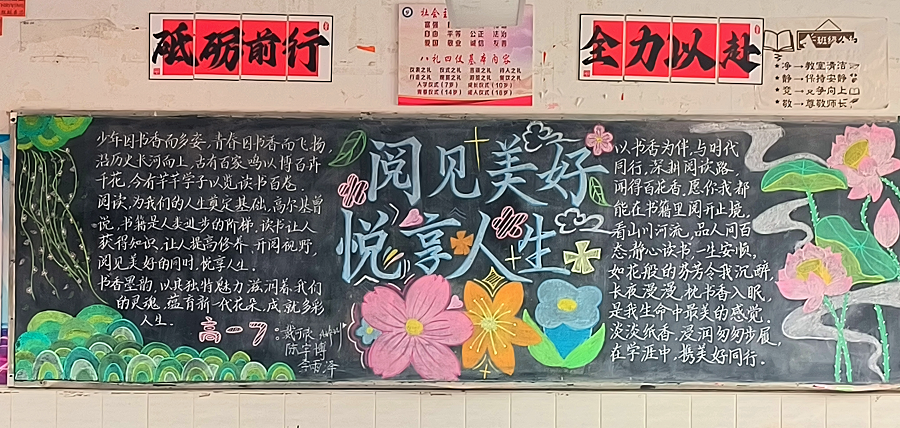 砥砺前行
全力以赴
富强
自由 平等 公正 法治
爱国 敬业 诚信 友善
八礼四仪基本内容
入学仪式(7岁) 成长仪式(10岁)
青春仪式(14岁) 成人仪式(18岁)
班级公约
净→教室清洁
静→保持安静
竞→竞争向上
敬→尊敬师长
少年因书香而多姿,青春因书香而飞扬
沿历史长河向上,古有百家鸣以博百卉
千花,今有芊芊学子以览读书百卷.
阅读,为我们的人生奠定基础,高尔基曾
说,书籍是人类进步的阶梯,读书让人
获得知识,让人提高修养,开阔视野,
阅见美好的同时,悦享人生.
书香墨韵,以其独特魅力滋润着我们
的灵魂,蕴育新一代花朵,成就多彩
人生.
高一7:
阅见美好
悦享人生
以书香为伴,与时代
同行,深耕阅读路,
闻得百花香,愿你我都
能在书籍里阅开止境,
看山川河流,品人间百
态,静心读书,一生安顺,
如花般的芬芳令我沉醉,
长夜漫漫,枕书香入眠,
是我生命中最美的感觉.
淡淡纸香,浸润匆匆步履,
在学涯中,携美好同行.